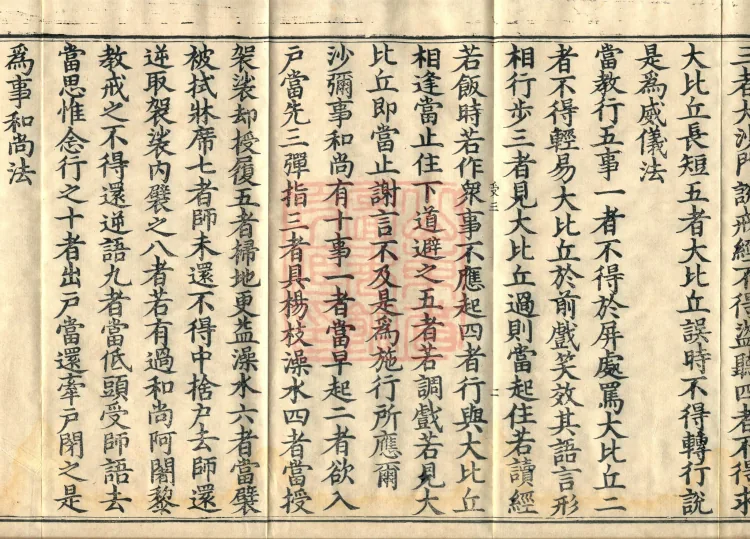 三者大沙門說戒經不得盜聽四者不得求
大比丘長短五者大比丘誤時不得轉行說
是為威儀法
當教行五事一者不得於屏處罵大比丘二
者不得輕易大比丘於前戲笑效其語言形
相行步三者見大比丘過則當起住若讀經
若飯時若作衆事不應起四者行與大比丘
相逢當止住下道避之五者若調戲若見大
比丘即當止謝言不及是為施行所應爾
沙彌事和尚有十事一者當早起二者欲入
戶當先三彈指三者具楊枝澡水四者當授
袈裟却授履五者掃地更益澡水六者當襞
被拭牀席七者師未還不得中捨戶去師還
逆取袈裟內襞之八者若有過和尚阿闍黎
教戒之不得還逆語九者當低頭受師語去
當思惟念行之十者出戶當還牽戶閉之是
為事和尚法